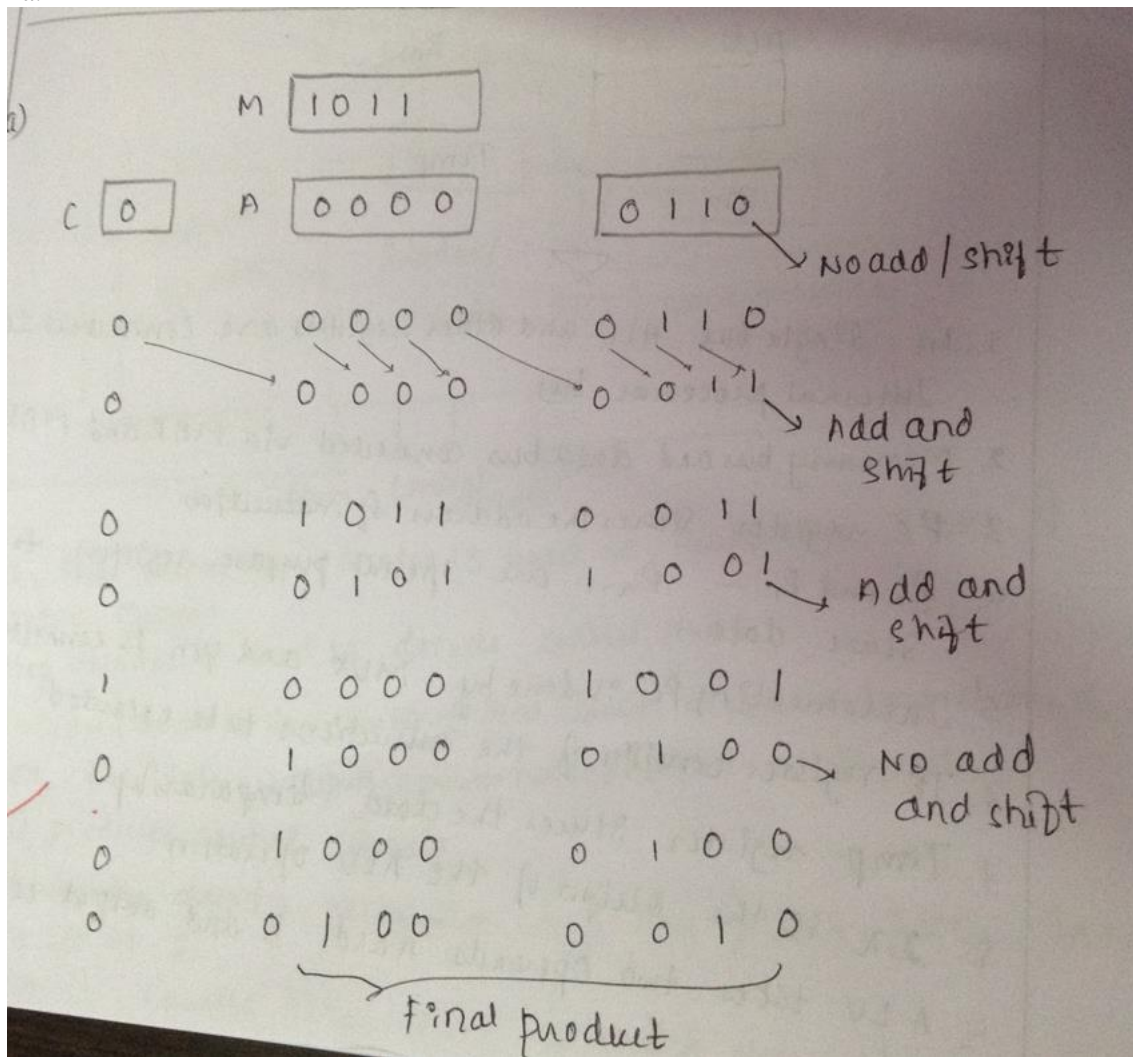 a)
M 1 0 1 1
C 0 A 0 0 0 0 0 1 1 0
No add / shift
0 0 0 0 0 0 1 1 0
0 0 0 0 0 0 0 1 1
Add and
shift
0 1 0 1 1 0 0 1 1
0 0 1 0 1 1 0 0 1
Add and
shift
1 0 0 0 0 1 0 0 1
0 1 0 0 0 0 1 0 0
No add
and shift
0 1 0 0 0 0 1 0 0
0 0 1 0 0 0 0 1 0
Final product